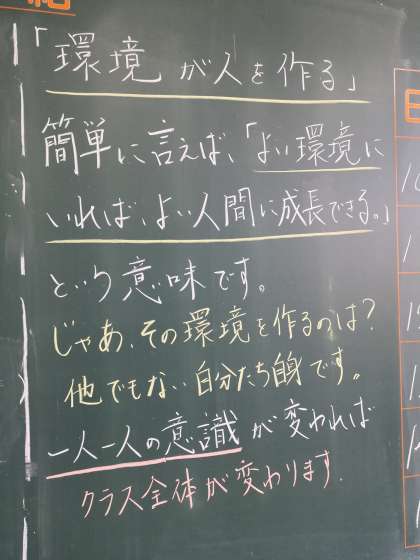 「環境が人を作る」
簡単に言えば、「よい環境に
いれば、よい人間に成長できる。」
という意味です。
じゃあ、その環境を作るのは?
他でもない自分たち自身です。
一人一人の意識が変われば
クラス全体が変わります.